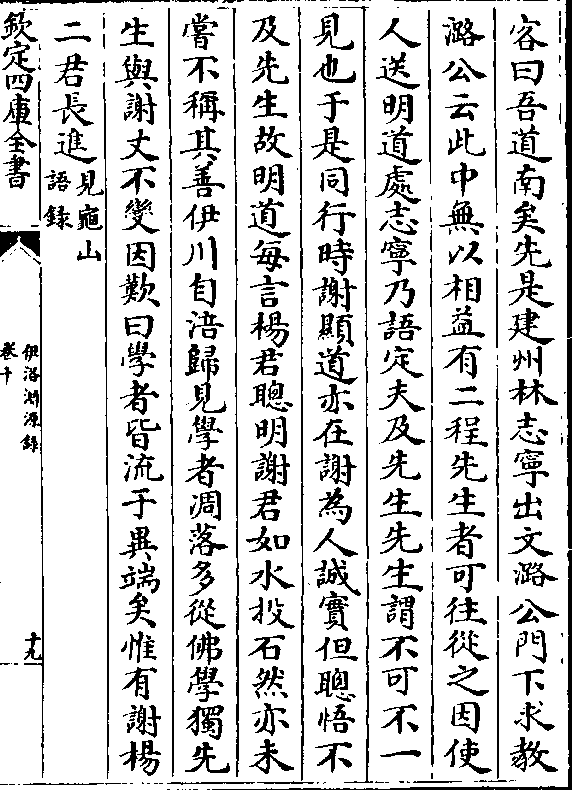 客曰吾道南矣先是建州林志寧出文潞公門下求教
潞公云此中無以相益有二程先生者可往從之因使
人送明道處志寧乃語定夫及先生先生謂不可不一
見也于是同行時謝顯道亦在謝為人誠實但聰悟不
及先生故明道每言楊君聰明謝君如水投石然亦未
嘗不稱其善伊川自涪歸見學者凋落多從佛學獨先
生與謝丈不變因歎曰學者皆流于異端矣惟有謝楊
二君長進見龜山
語錄
欽定四庫全書
伊洛淵源錄
卷十
十九